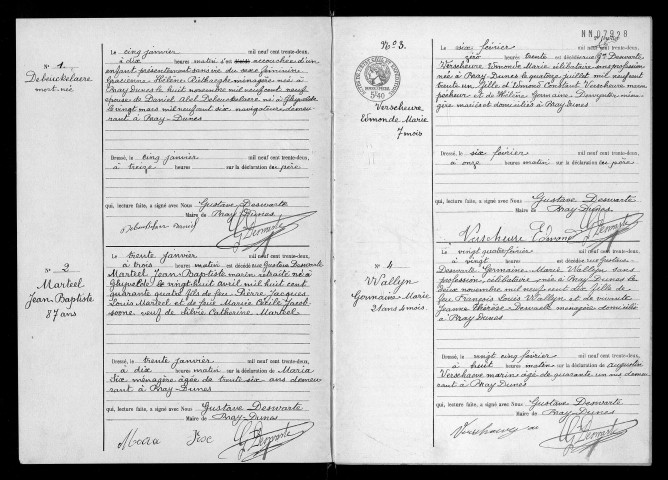 N° 1
Debuckelaere
mort-née
Le cinq janvier mil neuf cent trente-deux,
à dix heures matin s'est accouchée d'un
enfant présentement sans vie du sexe féminin
Gracienne Hélène ménagère née à
Bray-Dunes le huit novembre mil neuf cent neuf
épouse de Daniel Abel Debuckelaere né à Ghyvelde
le vingt mars mil neuf cent six navigateur demeu-
rant à Bray-Dunes
Dressé, le cinq janvier mil neuf cent trente-deux,
à treize heures sur la déclaration du père
qui, lecture faite, a signé avec Nous Gustave Deswarte
Maire de Bray-Dunes
N° 2
Marteel
Jean Baptiste
87 ans
Le trente janvier mil neuf cent trente-deux,
à trois heures matin est décédé rue Gustave Deswarte
Marteel Jean Baptiste marin retraité né à
Ghyvelde le vingt huit avril mil huit cent
quarante quatre fils de feu Pierre Jacques
Louis Marteel et de feue Marie Cécile Jacob-
soone veuf de Silvie Catherine Marteel
Dressé, le trente janvier mil neuf cent trente-deux,
à dix heures matin sur la déclaration de Maria
Six ménagère âgée de trente six ans demeu-
rant à Bray-Dunes
qui, lecture faite, a signé avec Nous Gustave Deswarte
Maire de Bray-Dunes
Maria Six
G Deswarte
N° 3.
Verscheure
Edmonde Marie
7 mois
Le six février mil neuf cent trente-deux,
à zéro heures trente est décédée rue Gve Deswarte
Verscheure Edmonde Marie célibataire sans profession
née à Bray-Dunes le quatorze juillet mil neuf cent
trente un fille d'Edmond Constant Verscheure marin
pêcheur et de Hélène Germaine ména-
gère mariés et domiciliés à Bray-Dunes
Dressé, le six février mil neuf cent trente-deux,
à onze heures matin sur la déclaration du père
qui, lecture faite, a signé avec Nous Gustave Deswarte
Maire de Bray-Dunes
Verscheure Edmond
G Deswarte
N° 4
Wallyn
Germaine Marie
21 ans 4 mois
Le vingt quatre février mil neuf cent trente-deux,
à vingt heures est décédée rue Gustave
Deswarte Germaine Marie Wallyn sans
profession, célibataire née à Bray-Dunes le
deux novembre mil neuf cent dix fille de
feu François Louis Wallyn et de vivante
Jeanne Thérèse ménagère domiciliée
à Bray-Dunes
Dressé, le vingt cinq février mil neuf cent trente-deux,
à huit heures matin sur la déclaration de Augustin
Verschaeve marin âgé de quarante un ans demeu-
rant à Bray-Dunes
qui, lecture faite, a signé avec Nous Gustave Deswarte
Maire de Bray-Dunes
G Deswarte